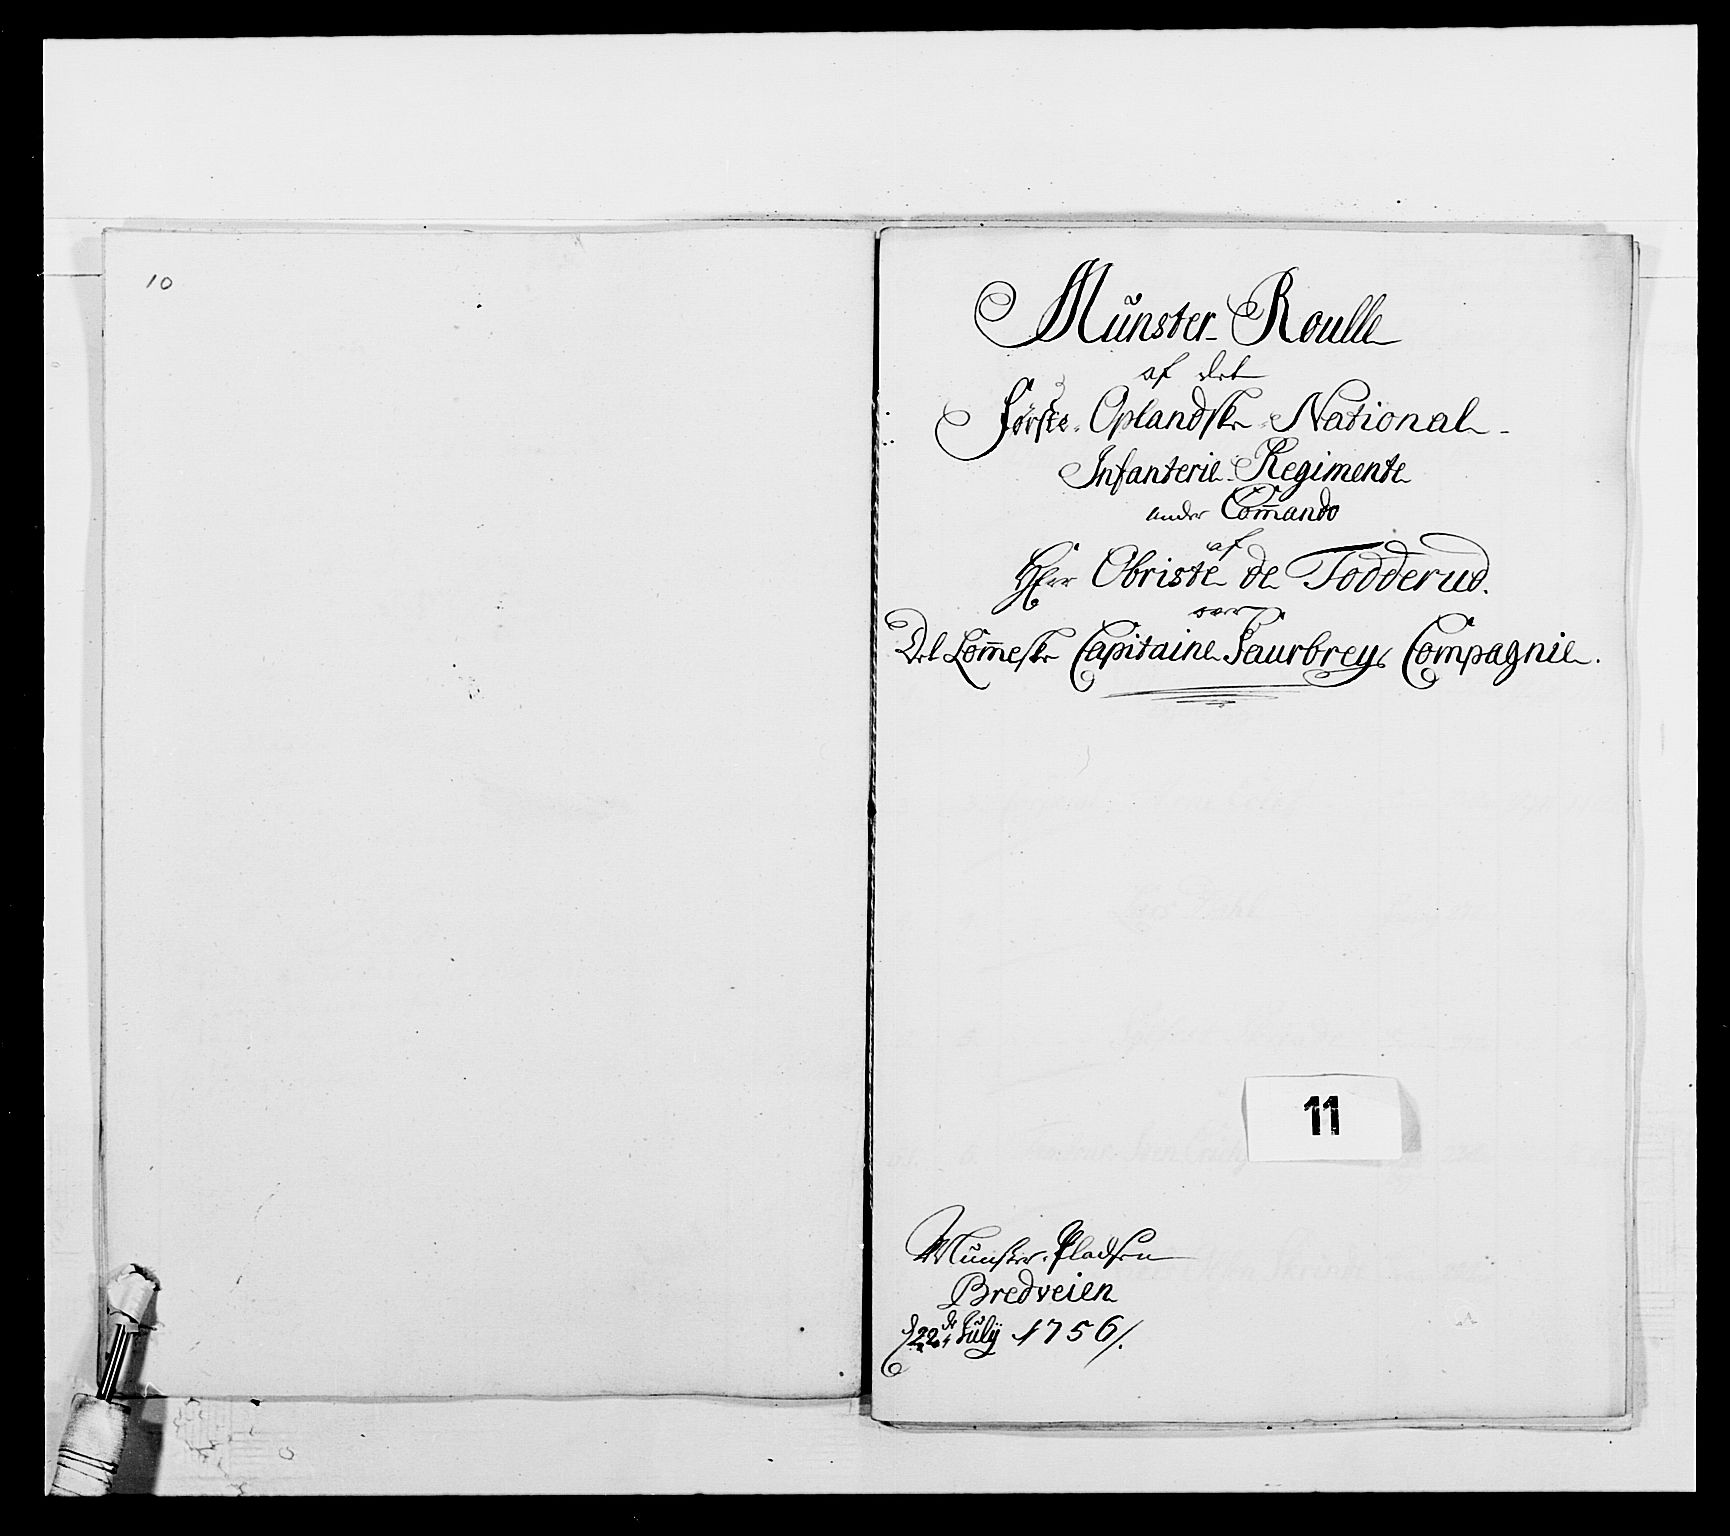 10
Münster-Roulle
af det
Første Oplandske National-
Infanterie Regimente
under Com̄ando
af
Herr Obriste de Todderud.
over
Det Lom̄eske Capitaine Saurbreys Compagnie.
11
Münster-Pladsen
Bredveien
d 22de Julÿ 1756/.